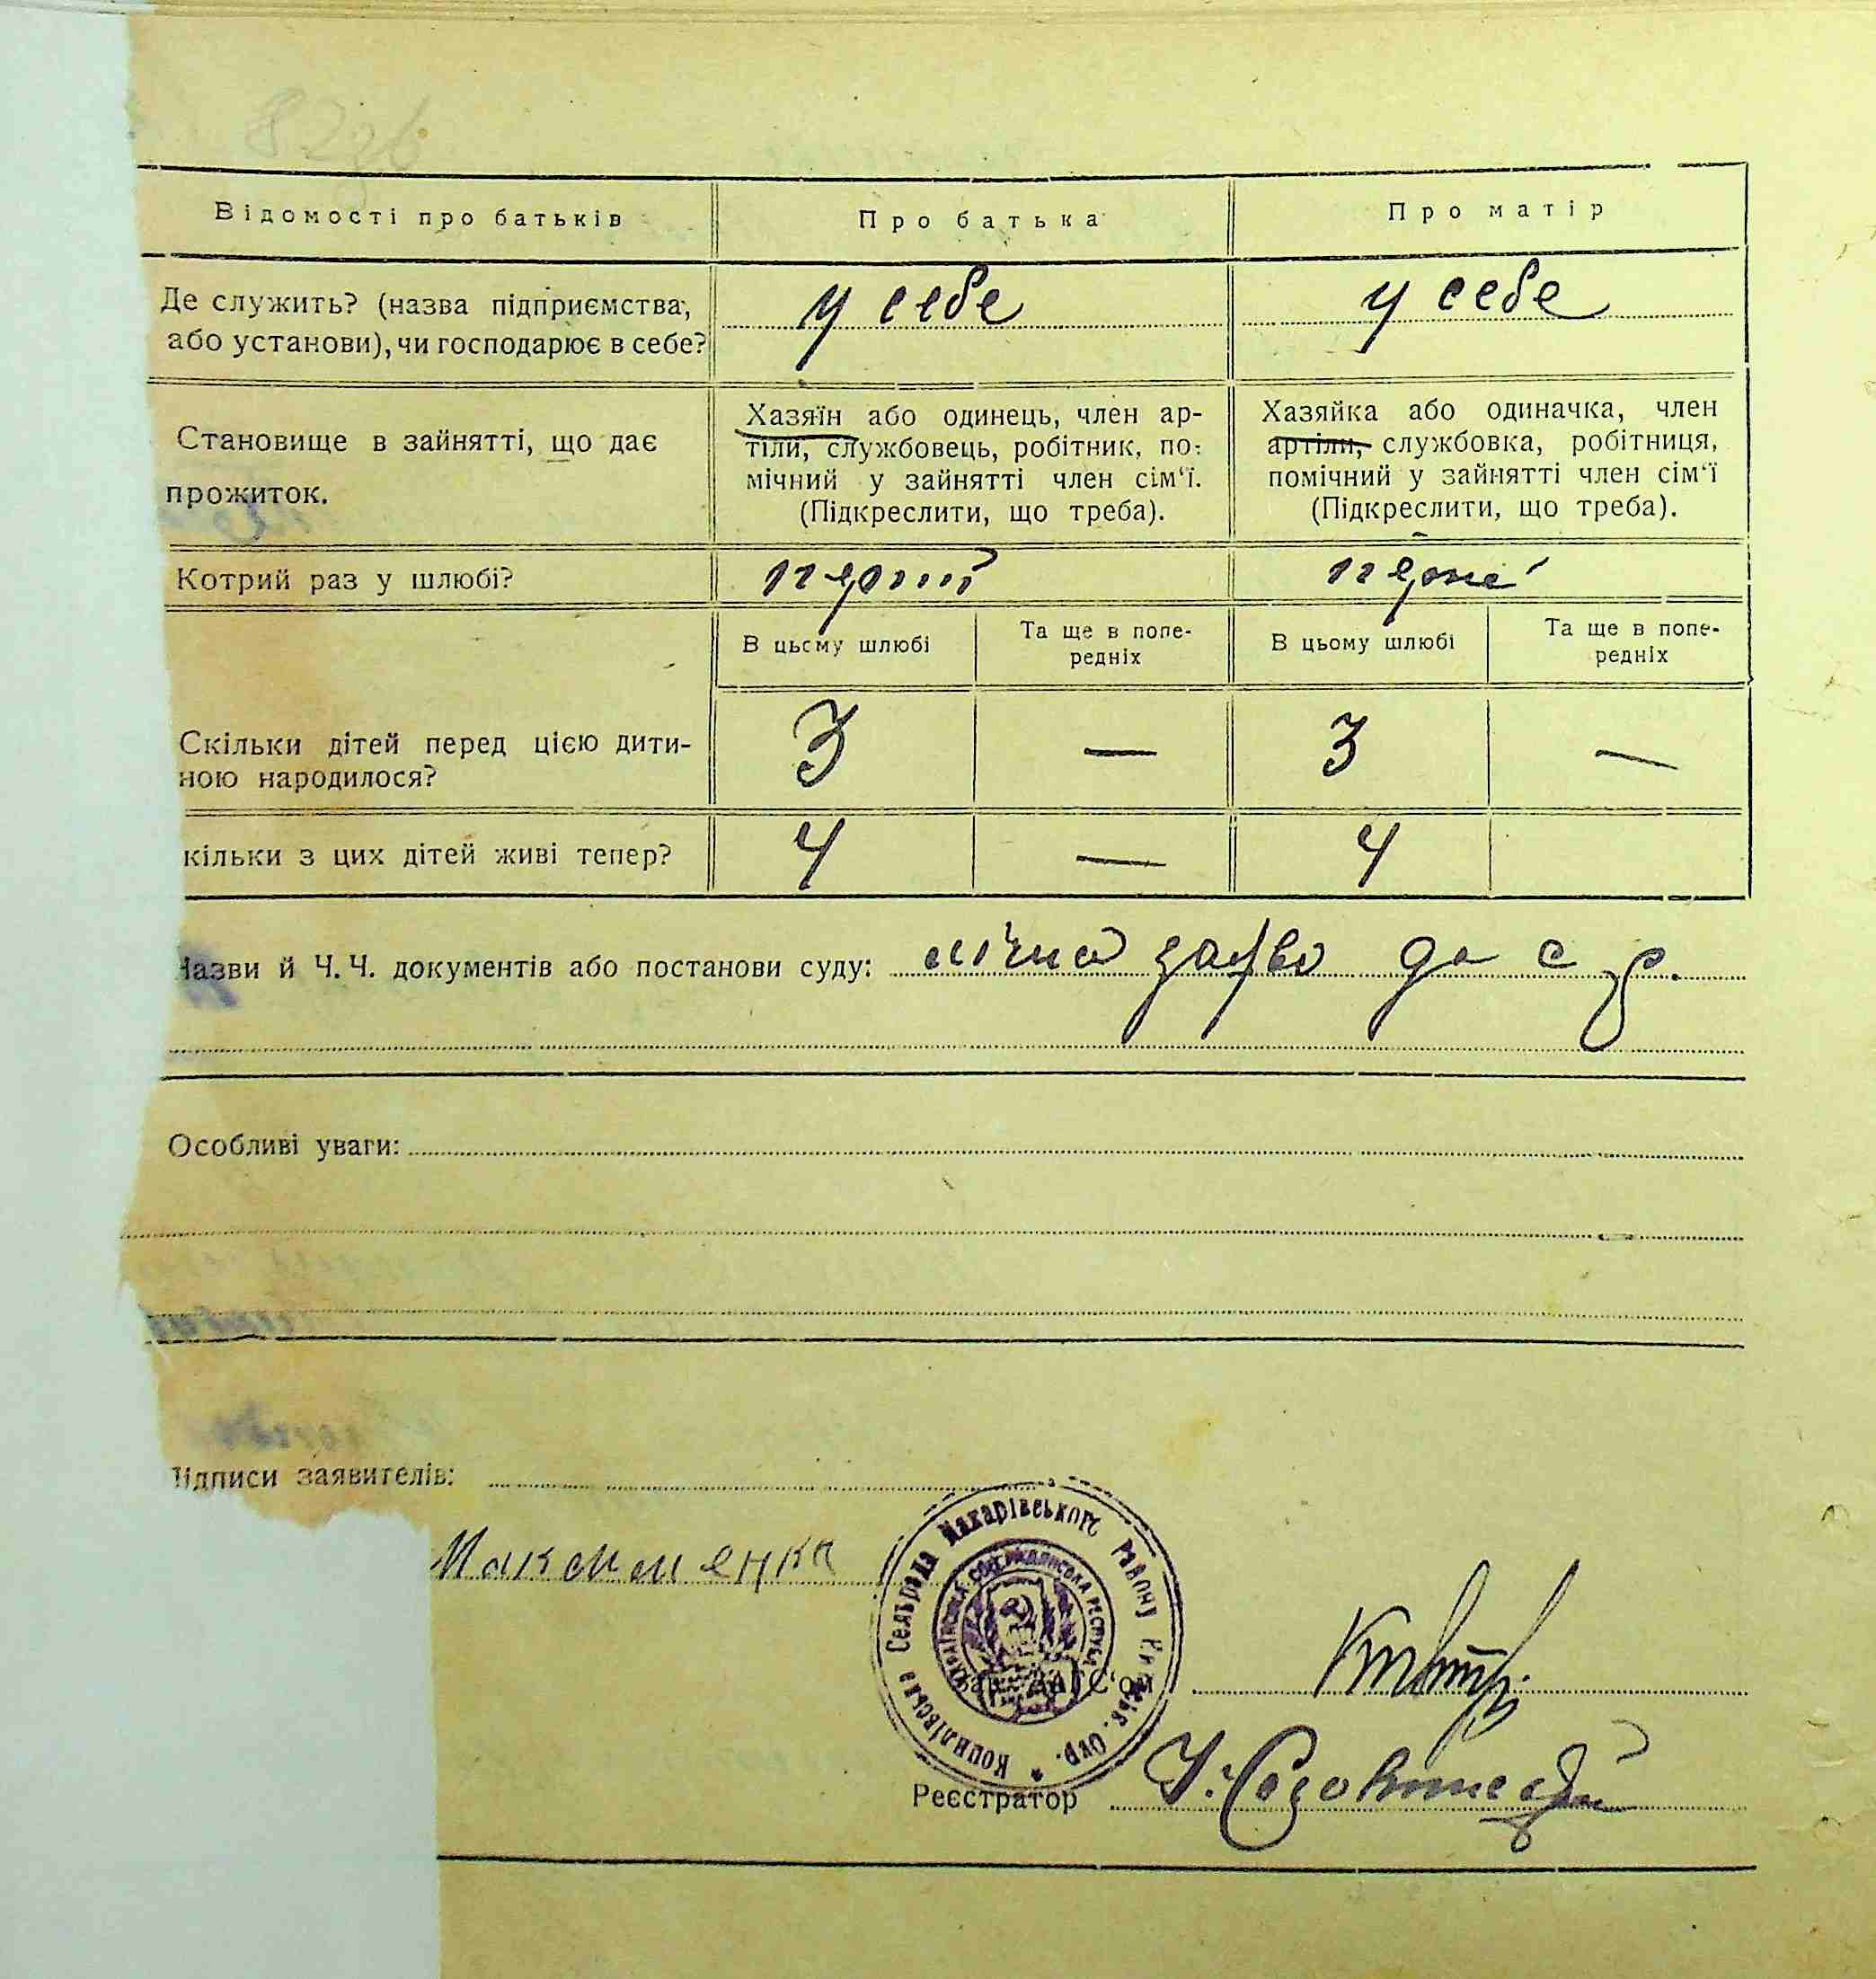 82зв
Відомості про батьків
Про батька
Про матір
Де служить? (назва підприємства, або установи), чи господарює в себе?
у себе
у себе
Становище в зайнятті, що дає прожиток.
Хазяїн або одинець, член ар-
тіли, службовець, робітник, по-
мічний у зайнятті член сім'ї.
(Підкреслити, що треба).
Хазяйка або одиначка, член
артіли, службовка, робітниця,
помічний у зайнятті член сім'ї
(Підкреслити, що треба).
Котрий раз у шлюбі?
перший
В цьсму шлюбі
Та ще в попе-
редніх
В цьому шлюбі
Та ще в попе-
редніх
Скільки дітей перед цією дити-
ною народилося?
3 — 3 —
кільки з цих дітей живі тепер?
4 — 4
Назви й Ч. Ч. документів або постанови суду: до с р.
Особливі уваги:
ідписи заявителів:
Максименко
Копилівська Сельрада Макарівського Району Київськ. Окр.
Реєстратор